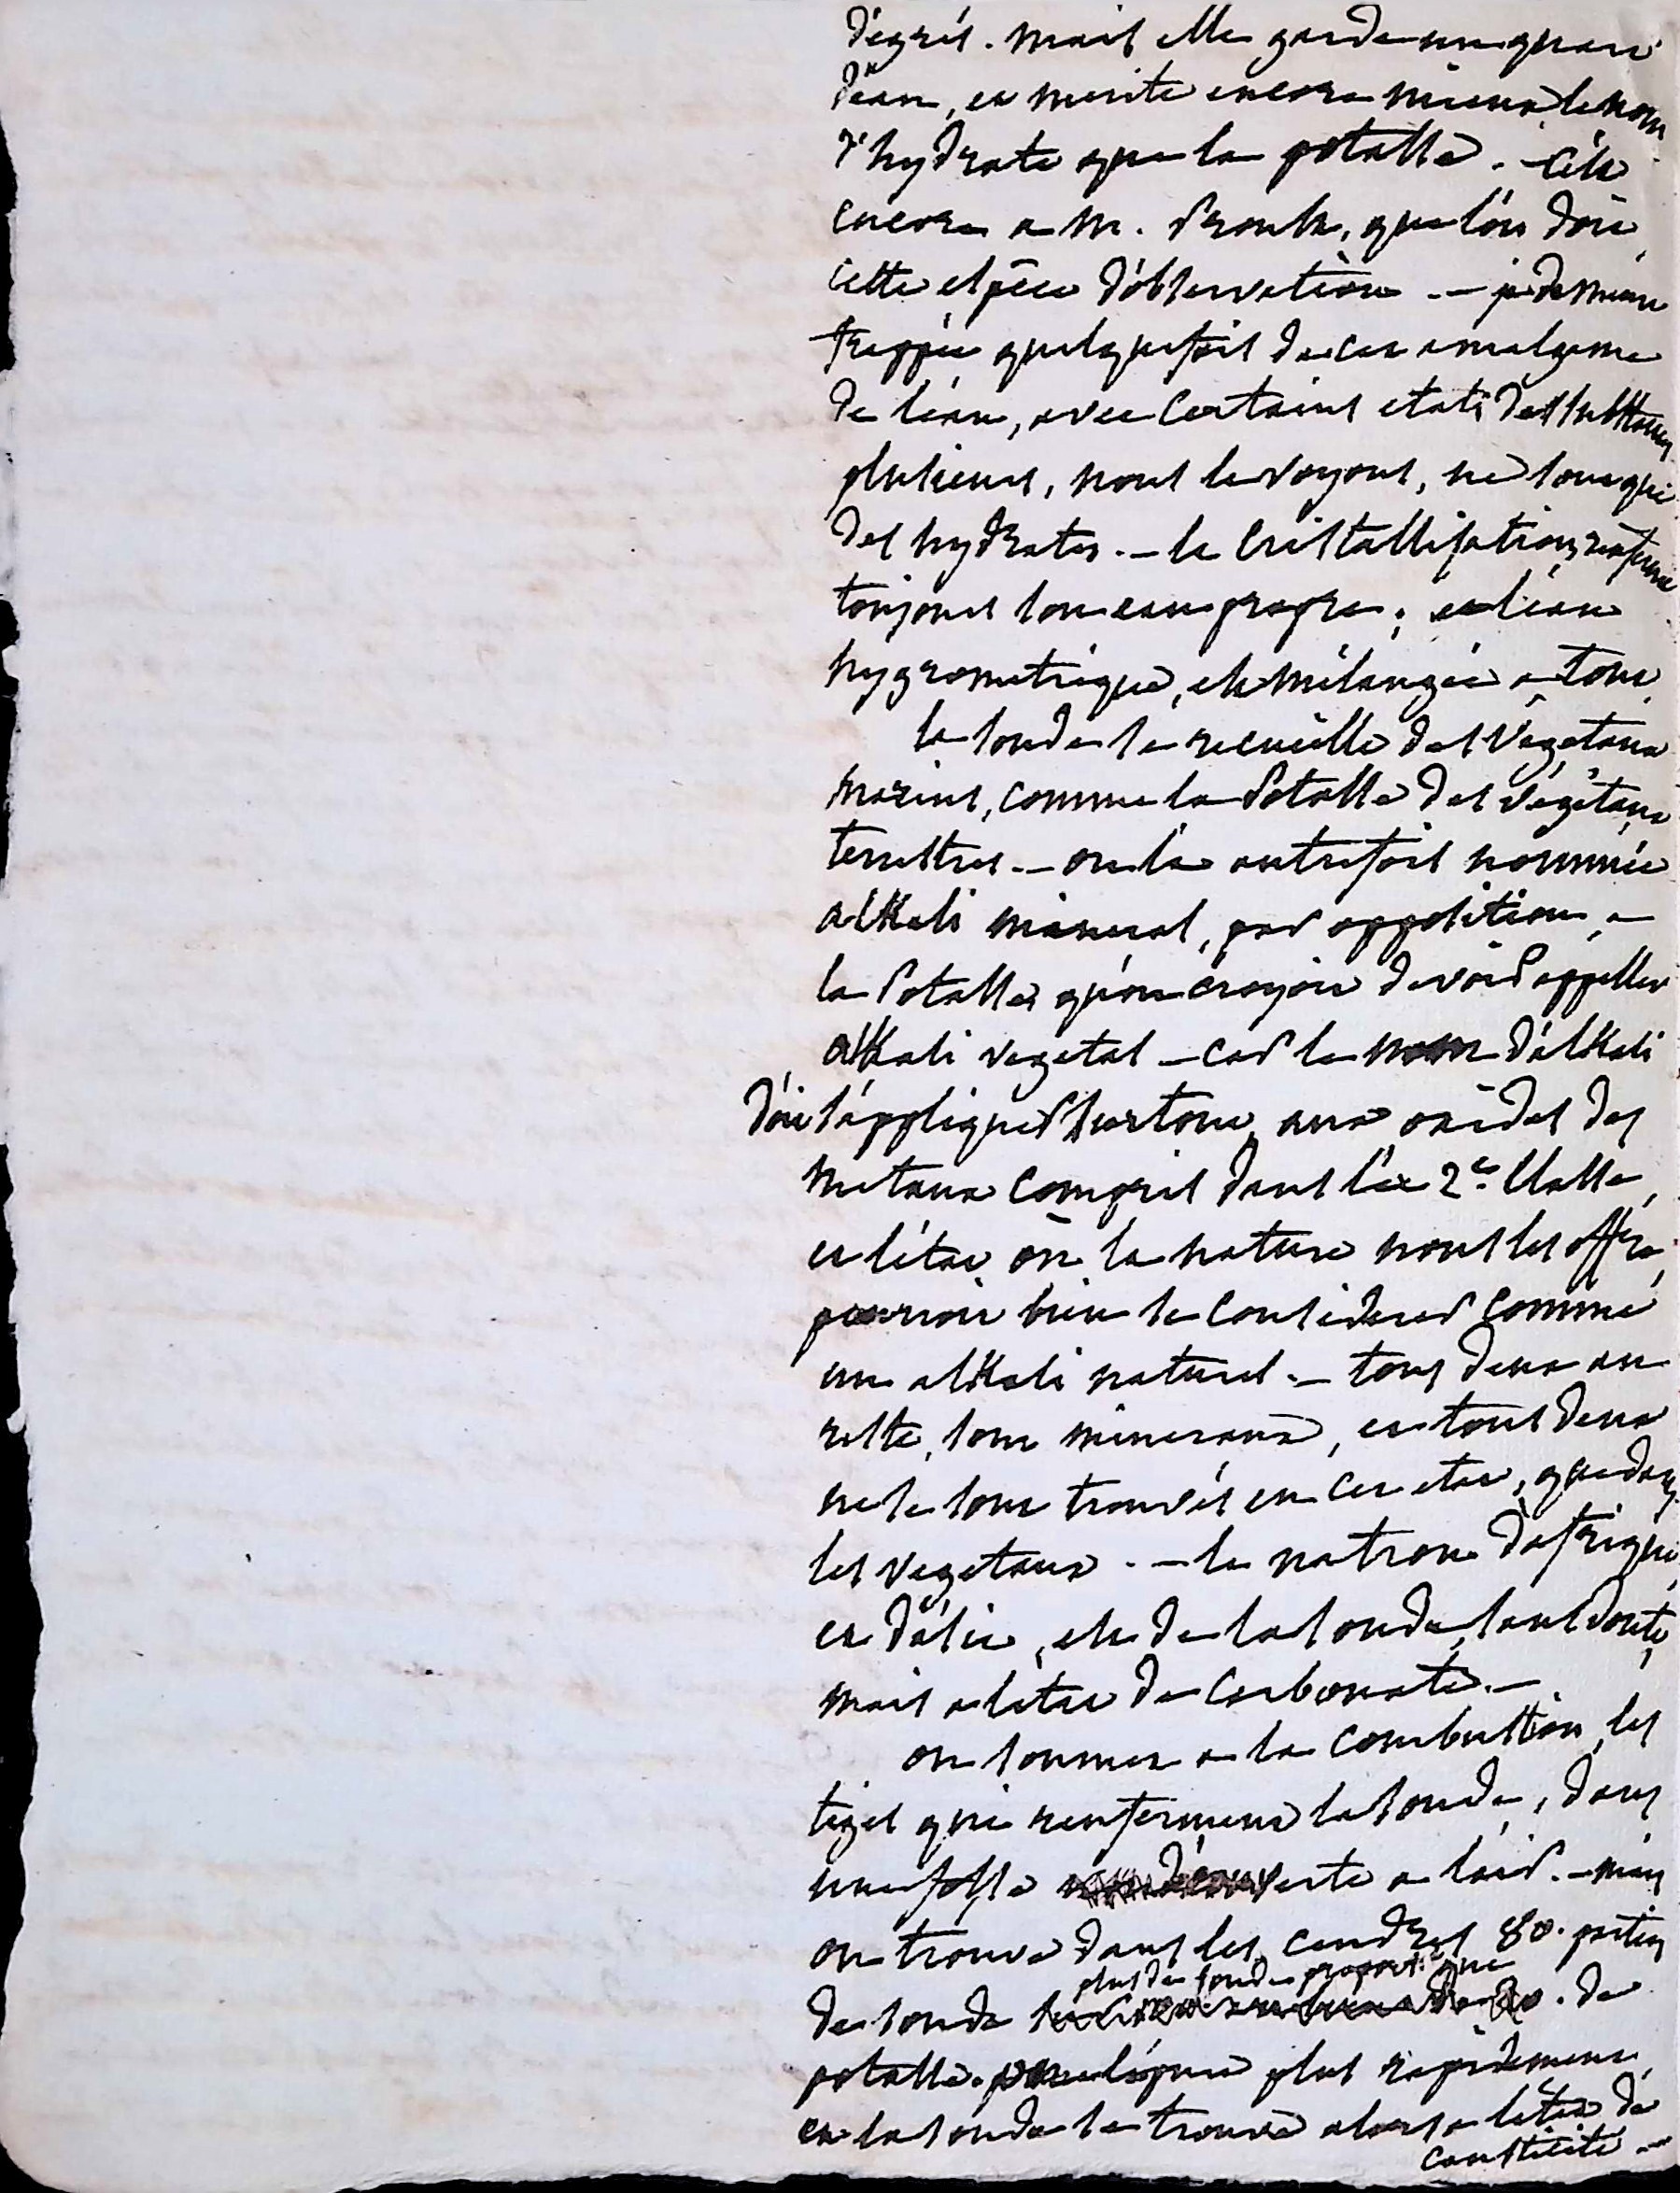 dégrés. mais elle garde un quart
d'eau, et merite encore mieux le nom
d'hydrate que la potasse. - C'est
encore a M. Proust, que l'on doit
cette espèce d'observation. - je demeure
frappée quelquefois de cet amalgame
de l'eau, avec certains etats des substances
plusieurs, nous le voyons, ne sont que
des hydrates. - la Cristallisation renferme
toujours son eau propre; et l'eau
hygrometrique, est mélangée a tout.
la soude se recueille des végétaux
marins, comme la Potasse des végétaux
terrestres. - on l'a autrefois nommée
alkali mineral, par opposition, a
la Potasse qu'on croyoit devoir appeller
alkali vegetal - car le nom d'alkali
doit s'appliquer surtout aux oxides des
metaux compris dans la 2e. Classe,
et l'état où la nature nous les offre,
pourroit bien se considerer comme
un alkali naturel. - tous deux au
reste, sont mineraux, et tous deux
ne se sont trouvés en cet etat, que dans
les vegetaux. - le natron d'afrique,
et d'asie, est de la soude, sans doute,
mais a l'état de Carbonate. -
on soumet a la combustion, les
tiges qui renferment la soude, dans
une fosse ouverte a l'air. - mais
on trouve dans les cendres 80. parties
de soude
plus de soude proport: que
de
potasse. plus rapidement,
et la soude se trouve alors a l'état de
causticité. -